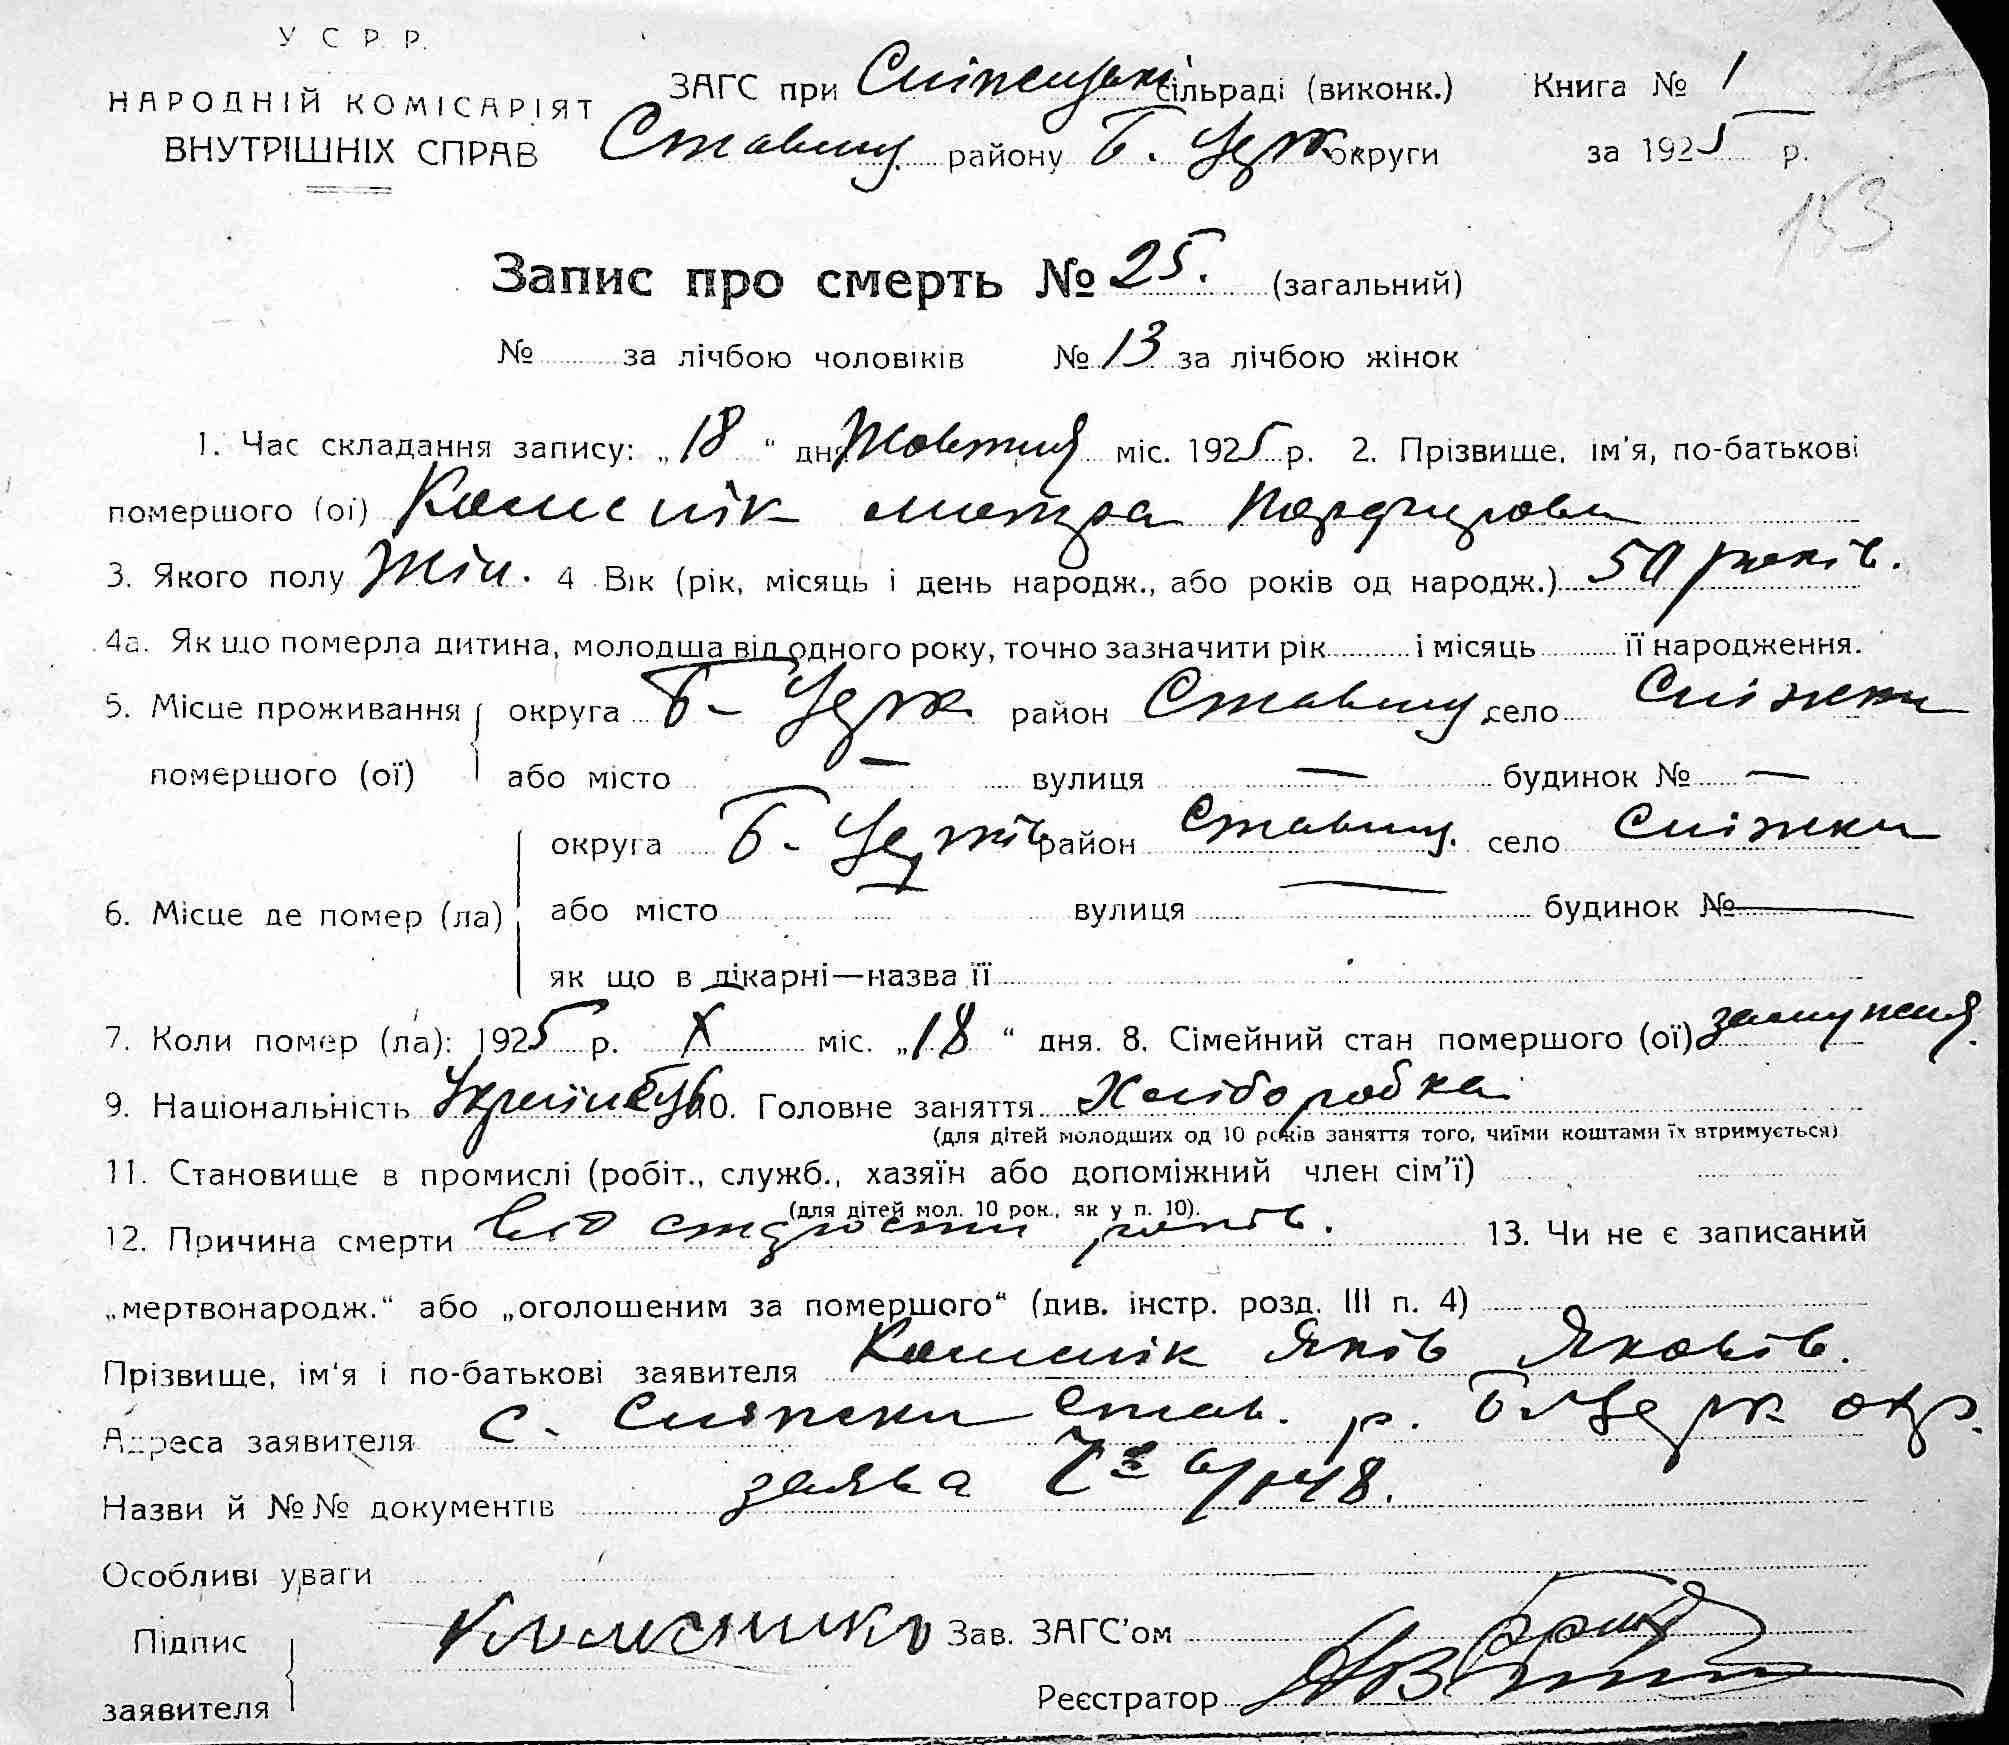 У С Р Р.
НАРОДНІЙ КОМІСАРІЯТ
ВНУТРІШНІХ СПРАВ
ЗАГС при Сніженській сільраді (виконк.) Книга № 1
Ставищ. району Б. Церк. округи за 1925 р.
153
Запис про смерть № 25. (загальний)
№ за лічбою чоловіків № 13 за лічбою жінок
1. Час складання запису: „18“ дня Жовтня міс. 1925 р. 2. Прізвище, ім'я, по-батькові
помершого (ої) Порфирова
3. Якого полу Жін. 4 Вік (рік, місяць і день народж., або років од народж.) 50 років.
4а. Як що померла дитина, молодша від одного року, точно зазначити рік і місяць її народження.
5. Місце проживання помершого (ої) округа Б- Церк район Ставищ. село Сніжки
або місто — вулиця — будинок № —
6. Місце де помер (ла) округа Б- Церків район Ставищ. село Сніжки
або місто — вулиця — будинок № —
як що в лікарні—назва її —
7. Коли помер (ла): 1925 р. X міс. „18“ дня. 8. Сімейний стан помершого (ої) замужня.
9. Національність 10. Головне заняття Хліборобка
(для дітей молодших од 10 років заняття того, чиїми коштами їх втримується)
11. Становище в промислі (робіт., служб., хазяїн або допоміжний член сім'ї)
(для дітей мол. 10 рок., як у п. 10).
12. Причина смерти від старости років. 13. Чи не є записаний
„мертвонародж.“ або „оголошеним за помершого“ (див. інстр. розд. III п. 4)
Прізвище, ім'я і по-батькові заявителя Яків Яковів.
Адреса заявителя с. Сніжки Став. р. Б-Церк окр.
Назви й №№ документів заява
Особливі уваги
Підпис заявителя Зав. ЗАГС'ом
Реєстратор